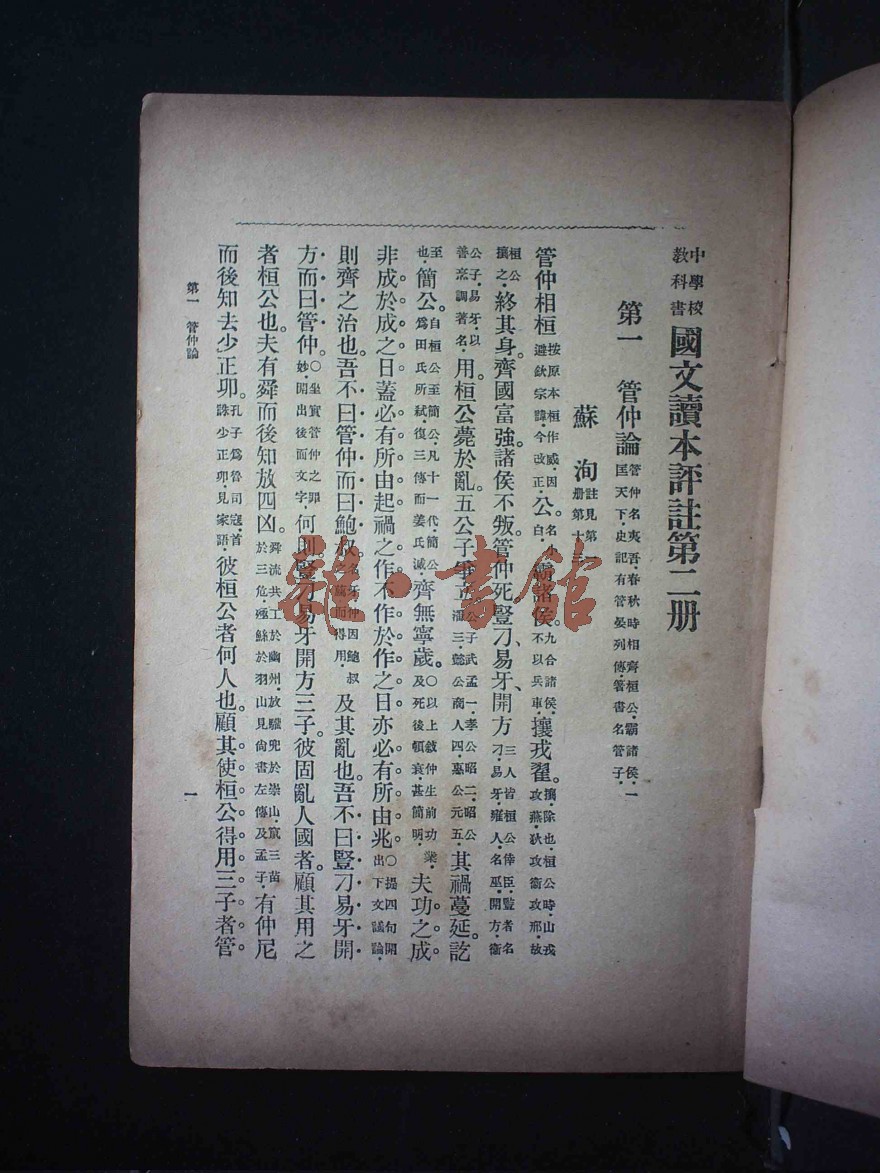 中學校教科書 國文讀本評註第二册
第一 管仲論 管仲名夷吾·春秋時相齊桓公·霸諸侯·一匡天下·史記有管晏列傳·著書名管子·
蘇洵 註見第一册第十三
管仲相桓 按原本桓作威·因避欽宗諱·今改正· 公 名小白· 霸諸侯。 九合諸侯·不以兵車· 攘戎翟。 攘·除也·桓公時·山戎攻燕·狄攻衞攻邢·故
桓公攘之· 終其身。齊國富強。諸侯不叛。管仲死。豎刁、易牙、開方 三人皆桓公倖臣·豎者名刁·易牙·雍人·名巫·開方·衞
公子·易牙·以善烹調著名· 用。桓公薨於亂。五公子爭立 公子武孟一·孝公昭二·昭公潘三·懿公商人四·惠公元五· 其禍蔓延。訖
至也· 簡公。 自桓公至簡公·凡十一代·簡公爲田氏所弑·復三傳而姜氏滅· 齊無寧歲。 ○以上敍仲生前功業·及死後頓衰·甚簡明· 夫功之成
非成於成之日。蓋必有所由起。禍之作。不作於作之日。亦必有所由兆。 ○提四句開出下文議論·
則齊之治也。吾不曰管仲而曰鮑叔。 名牙·仲因鮑叔之薦而得用· 及其亂也。吾不曰豎刁易牙開
方。而曰管仲。 ○坐實管仲之罪妙·開出後面文字· 何則。豎刁易牙開方三子。彼固亂人國者。顧其用之
者桓公也。夫有舜而後知放四凶。 舜流共工於幽州·放驩兜於崇山·竄三苗於三危·殛鯀於羽山·見尙書左傳及孟子· 有仲尼
而後知去少正卯。 孔子爲魯司寇·首誅少正卯·見家語· 彼桓公者何人也。顧其使桓公得用三子者管
第一 管仲論
一
雜·書館